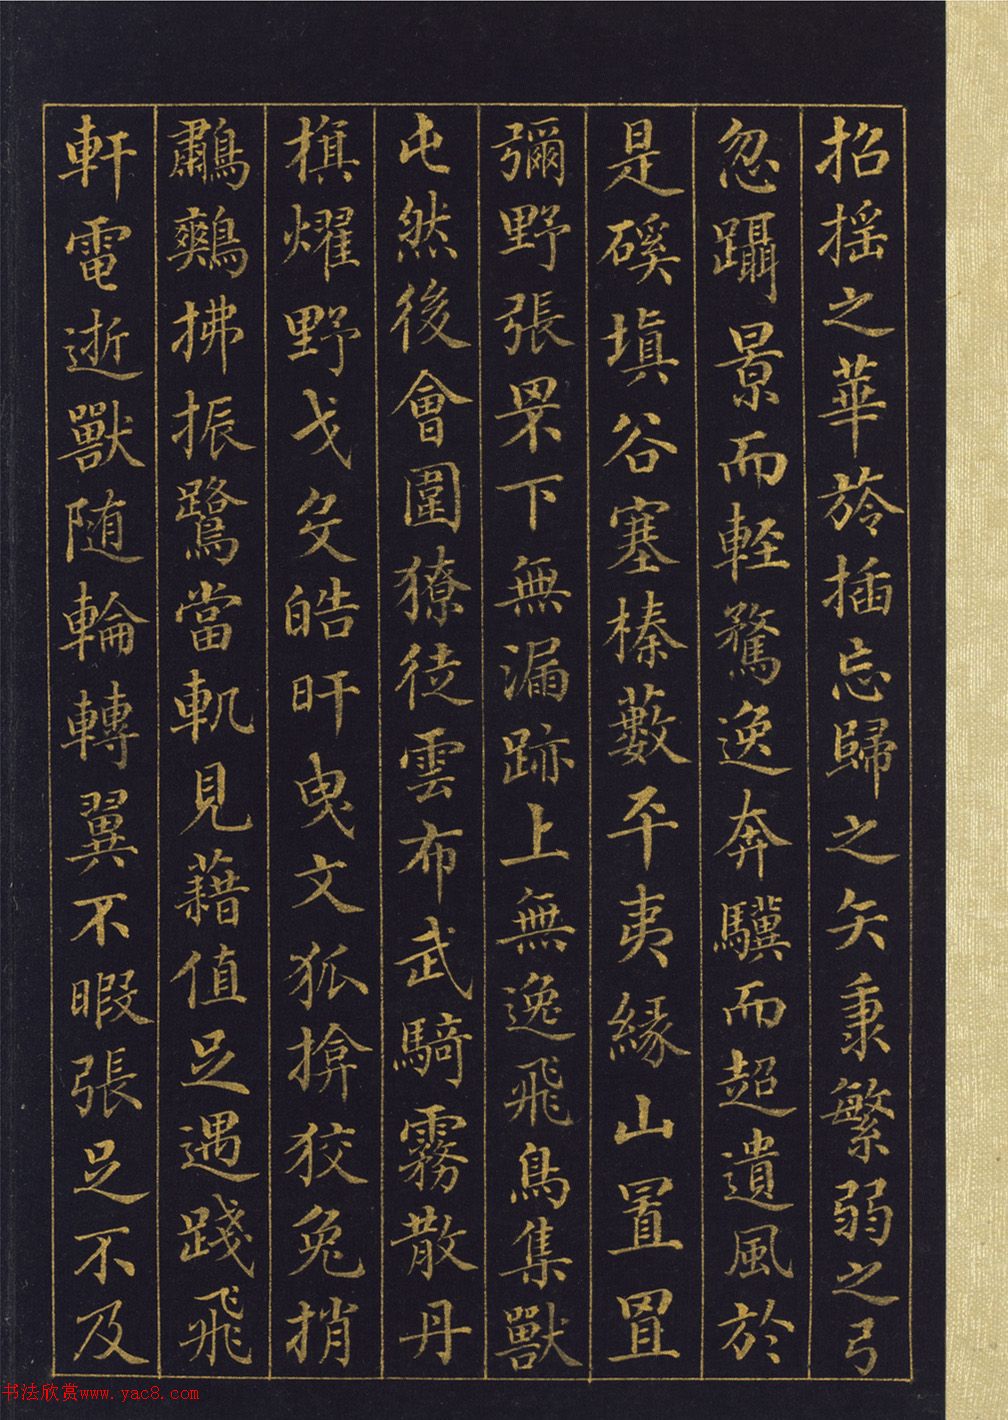 招摇之華旍插忘歸之矢秉繁弱之弓
忽躡景而輕騖逸奔驥而超遺風於
是磎填谷塞榛藪平夷緣山置罝
彌野張罘下無漏跡上無逸飛鳥集獸
屯然後會圍獠徒雲布武騎霧散丹
旗燿野戈殳皓旰曳文狐揜狡兔捎
鷫鷞拂振鷺當軌見藉值足遇踐飛
軒電逝獸随輪轉翼不暇張足不及
书法欣赏www.yac8.com